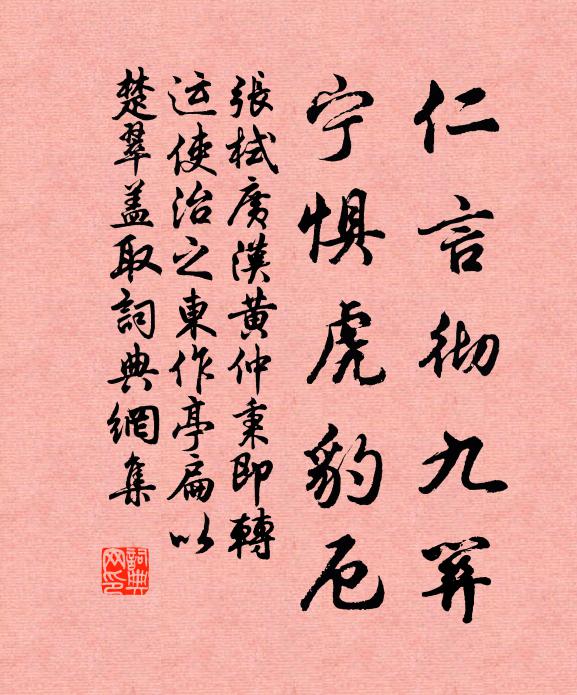 仁言彻九关
宁惧虎豹厄
張栻廣漢黄仲秉即轉
运使治之東作亭扁以
楚翠盖取詞典網集
詞典网印